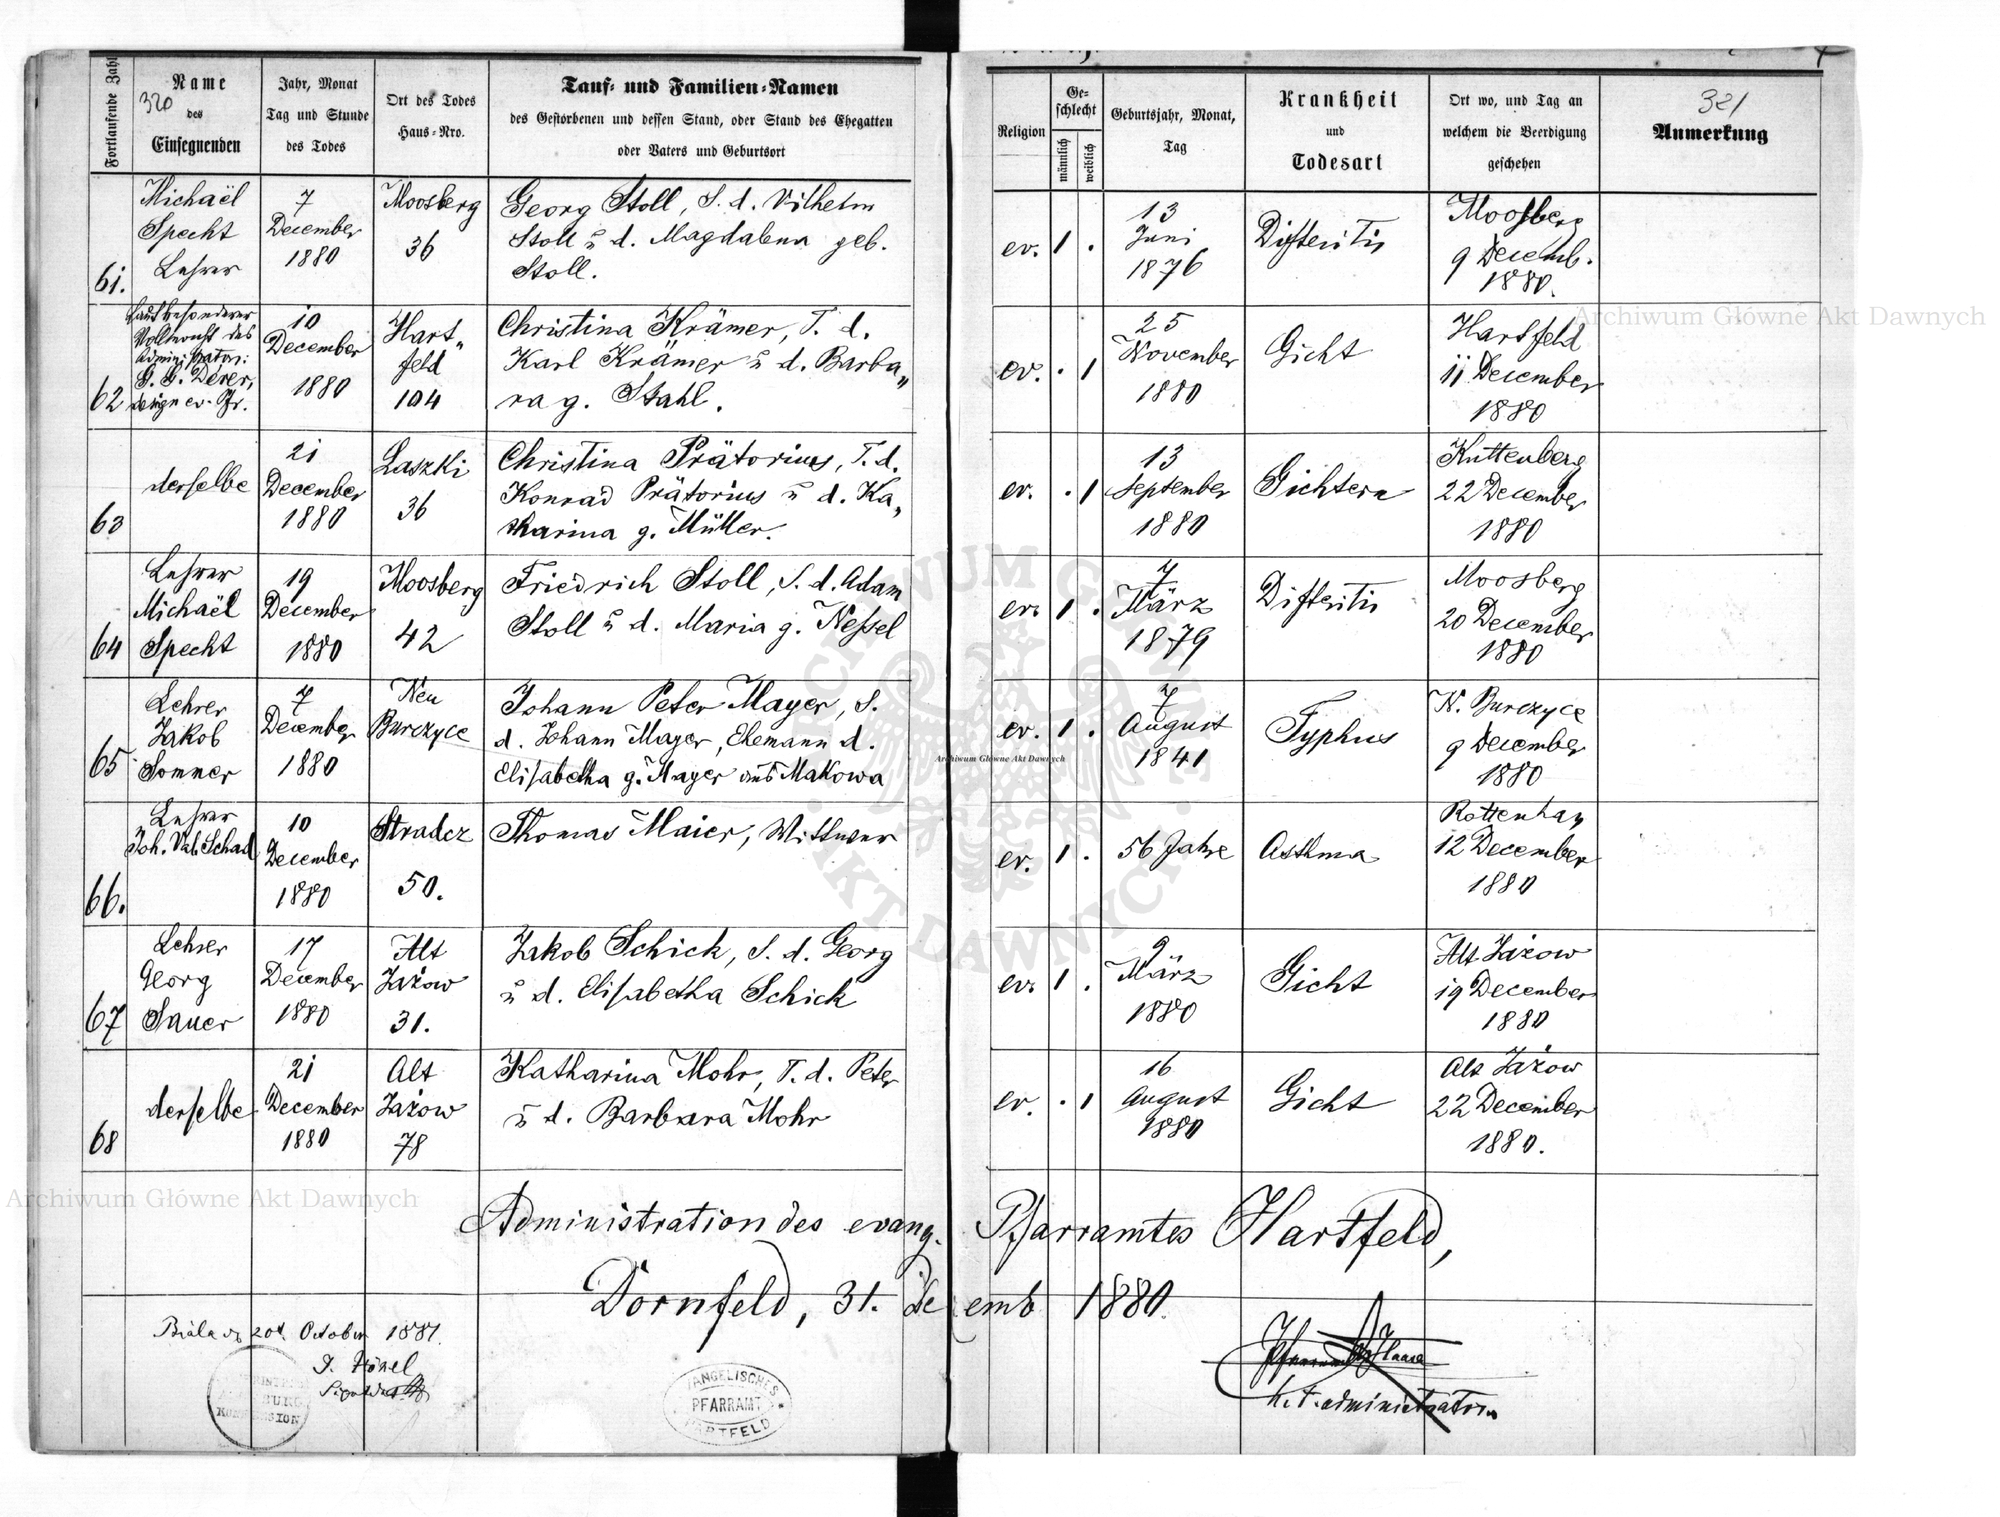 320
Fortlaufende Zahl
Name
des
Einsegnenden
Jahr, Monat
Tag und Stunde
des Todes
Ort des Todes
Haus-Nro.
Tauf- und Familien-Namen
des Gestorbenen und dessen Stand, oder Stand des Ehegatten
oder Vaters und Geburtsort
Religion
Ge-
schlecht
männlich
weiblich
Geburtsjahr, Monat,
Tag
Krankheit
und
Todesart
Ort wo, und Tag an
welchem die Beerdigung
geschehen
321
Anmerkung
61.
Michaël
Specht
Lehrer
7
December
1880
Moosberg
36
Georg Stoll, S. d. Vilhelm
Stoll u d. Magdalena geb.
Stoll.
ev.
1
.
13
Juni
1876
Difteritis
Moosberg
9 Decemb.
1880.
62
Laut besonderer
Vollmacht des
10
December
1880
Hart-
feld
104
Christina Krämer, T. d.
Karl Krämer u d. Barba-
ra g. Stahl.
ev.
.
1
25
November
1880
Gicht
Hartfeld
11 December
1880
63
derselbe
21
December
1880
Laszki
36
Christina Prätorius, T. d.
Konrad Prätorius u d. Ka-
tharina g. Müller.
ev.
.
1
13
September
1880
Gichtern
Kuttenberg
22 December
1880
64
Lehrer
Michaël
Specht
19
December
1880
Moosberg
42
Friedrich Stoll, S. d. Adam
Stoll u d. Maria g. Nessel
ev.
1
.
7
März
1879
Difteritis
Moosberg
20 December
1880
65
Lehrer
Jakob
Sommer
7
December
1880
Neu
Burczyce
Johann Peter Mayer, S.
d. Johann Mayer, Ehemann d.
Elisabetha g. Mayer aus Makowa
ev.
1
.
7
August
1841
Typhus
N. Burczyce
9 December
1880
66.
Lehrer
Joh. Val. Schad
10
December
1880
Stradcz
50.
Thomas Maier, Wittwer
ev.
1
.
56 Jahre
Asthma
Rottenhan
12 December
1880
67
Lehrer
Georg
Sauer
17
December
1880
Alt
Jażow
31.
Jakob Schick, S. d. Georg
u d. Elisabetha Schick
ev.
1
.
9
März
1880
Gicht
Alt Jażow
19 December
1880
68
derselbe
21
December
1880
Alt
Jażow
78
Katharina Mohr, T. d. Peter
u d. Barbara Mohr
ev.
.
1
16
August
1880
Gicht
Alt Jażow
22 December
1880.
Administration des evang. Pfarramtes Hartfeld,
Dornfeld, 31. Decemb 1880.
October 1881.
J. Hönel
EVANGELISCHES
PFARRAMT
HARTFELD
h. t. administrator
Archiwum Główne Akt Dawnych
Archiwum Główne Akt Dawnych
Archiwum Główne Akt Dawnych
ARCHIWUM GŁÓWNE
AKT DAWNYCH